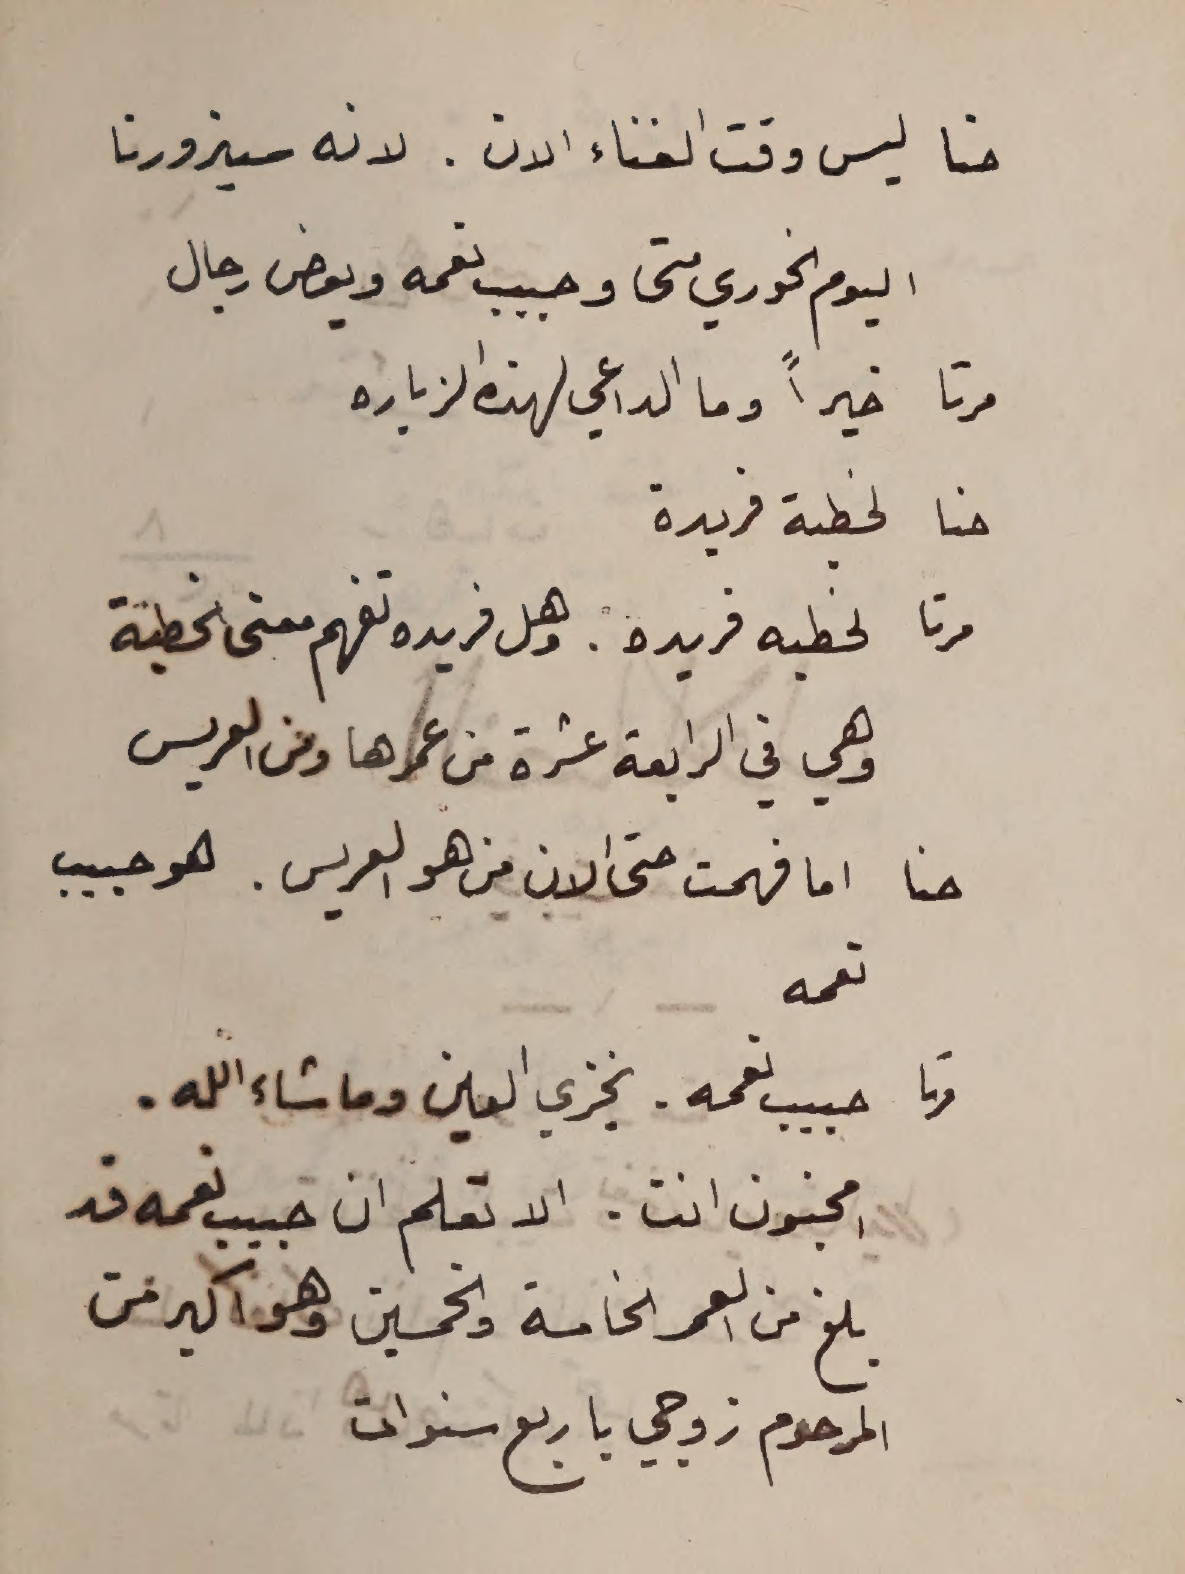 حنا ليس وقت الغناء الان . لانه سيزورنا
اليوم الخوري متى وحبيب نعمه وبعض رجال
مرتا خيراً وما الداعي لهذه الزياره
حنا لخطبة فريدة
مرتا لخطبه فريده . وهل فريده تفهم معنى الخطبة
وهي في الرابعة عشرة من عمرها ومن العريس
حنا اما فهمت حتى الان من هو العريس . هو حبيب
نعمه
مرتا حبيب نعمه . يخزي العين وما شاء الله .
امجنون انت . الا تعلم ان حبيب نعمه قد
بلغ من العمر الخامسة والخمسين وهو اكبر من
المرحوم زوجي باربع سنوات